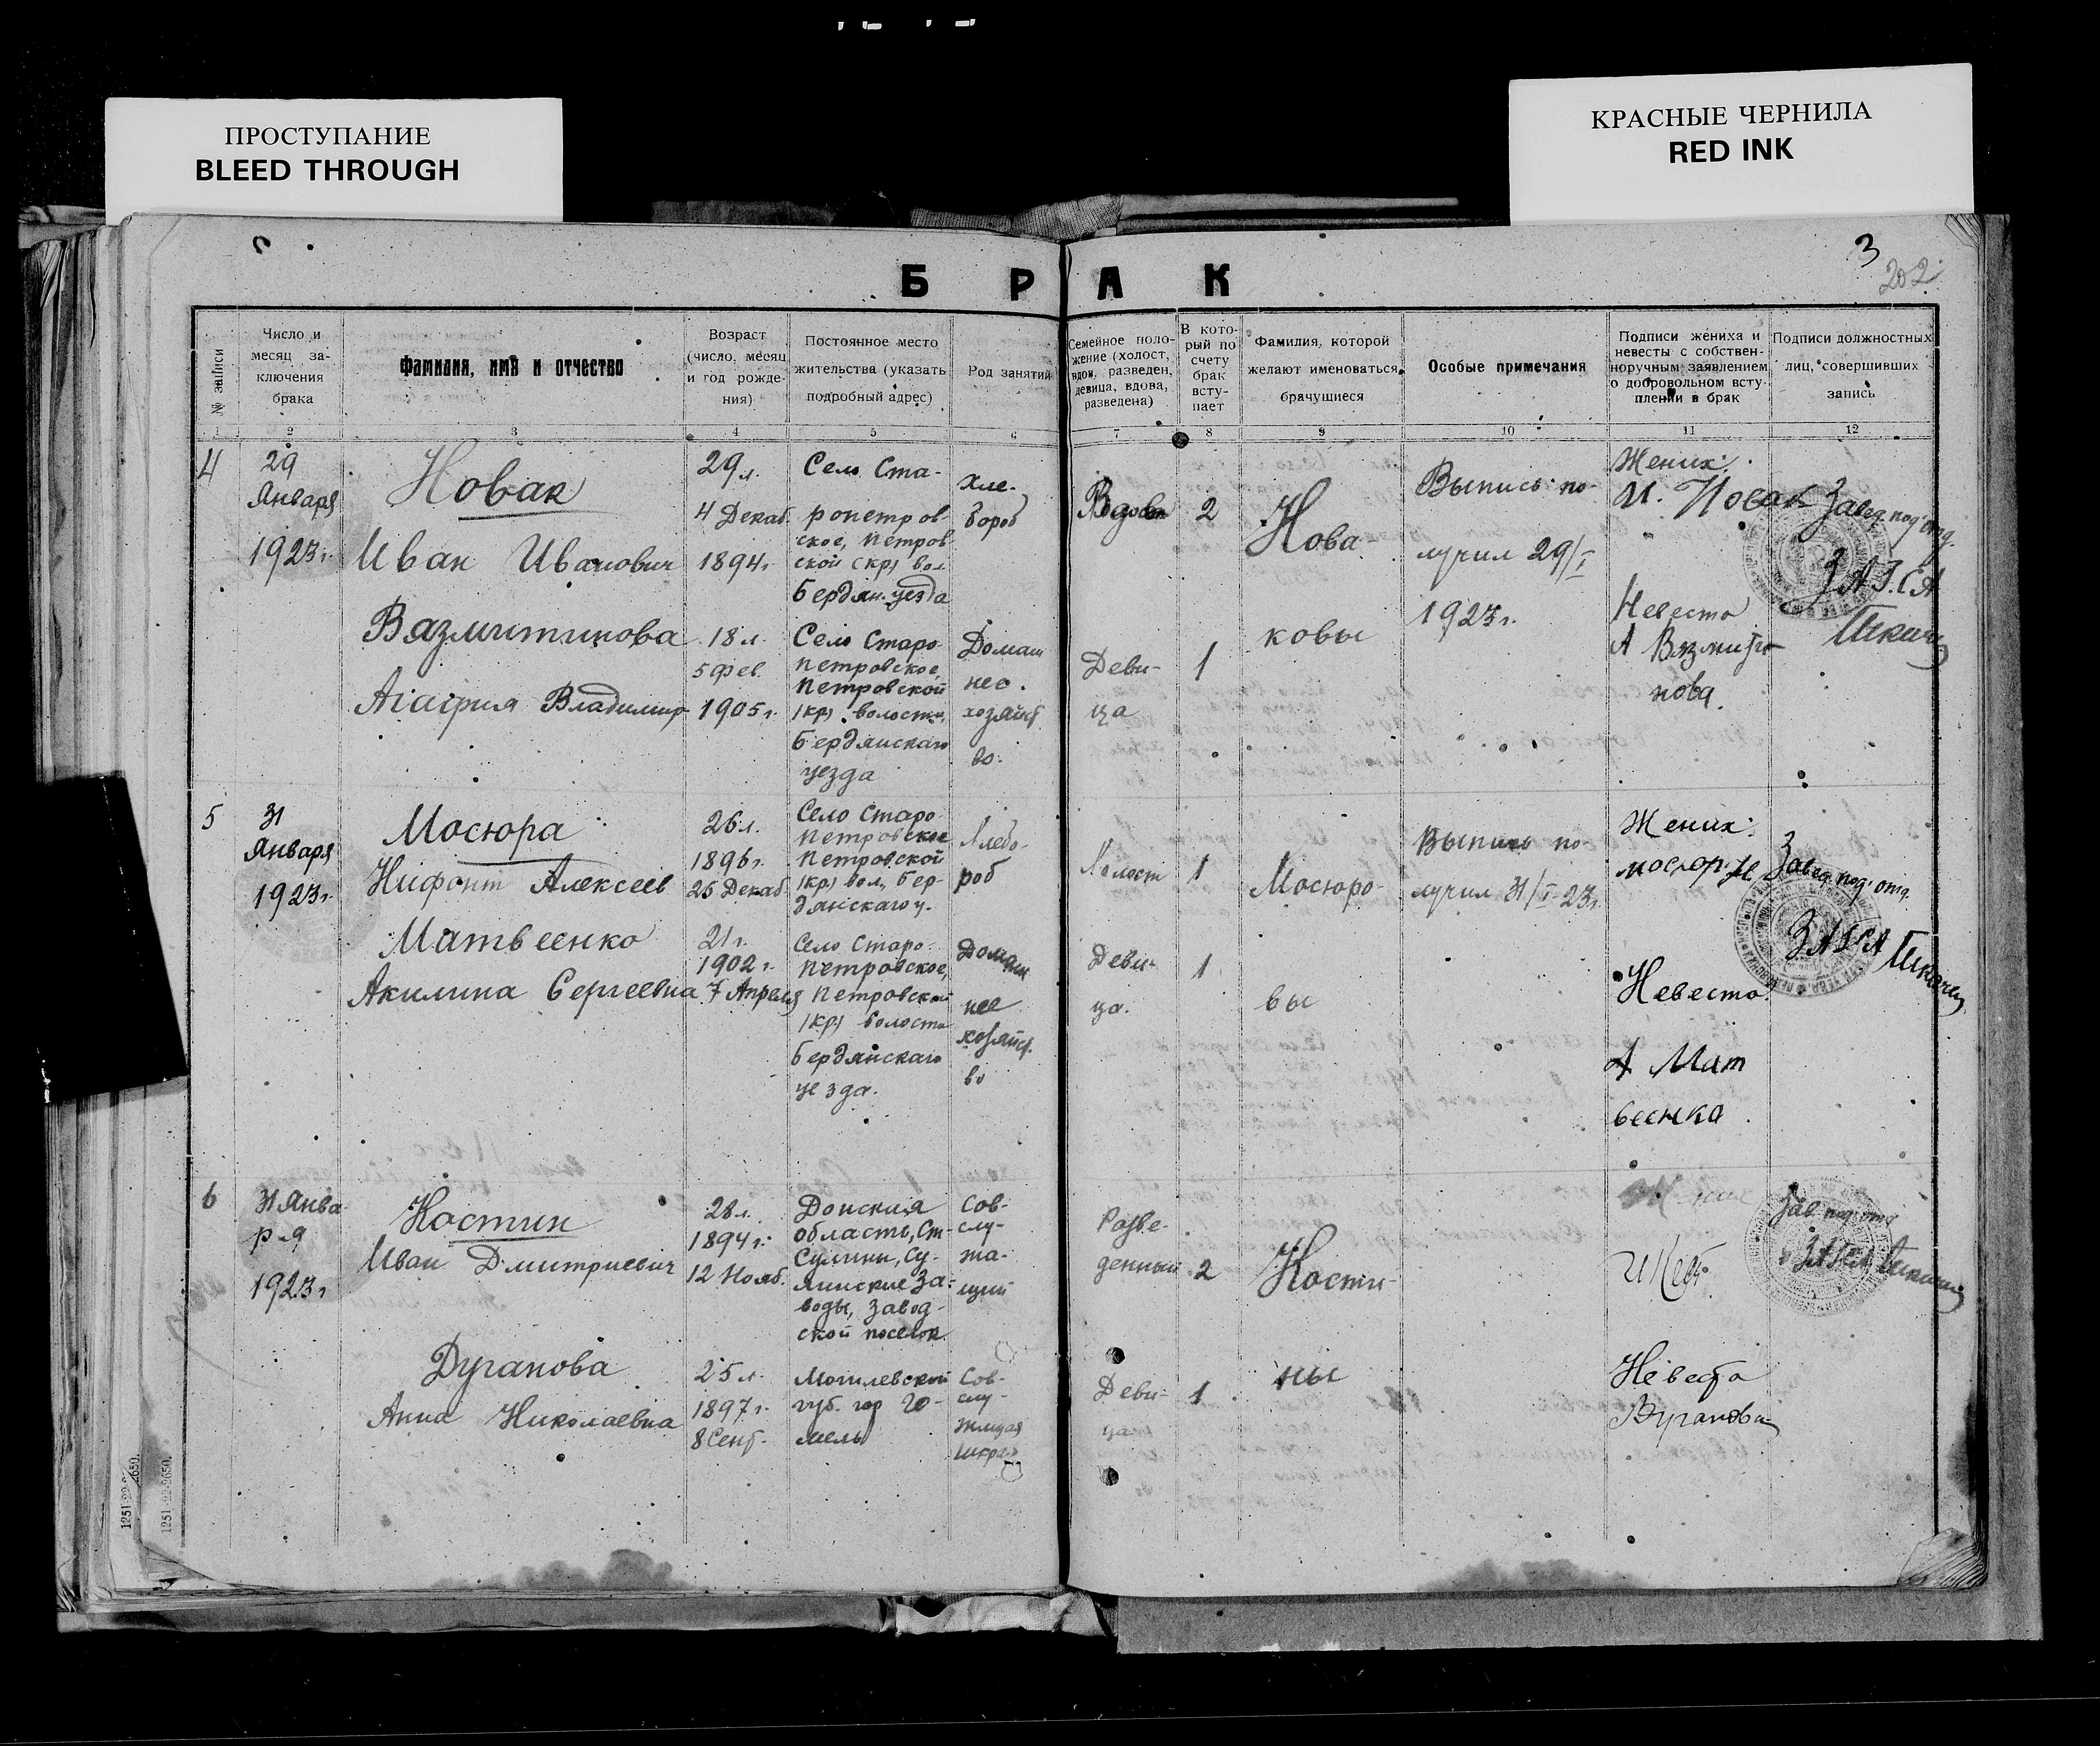 ПРОСТУПАНИЕ
BLEED THROUGH
КРАСНЫЕ ЧЕРНИЛА
RED INK
3
202
БРАК
№ записи
Число и
месяц за-
ключения
брака
Фамилия, имя и отчество
Возраст
(число, месяц
и год рожде-
ния)
Постоянное место
жительства (указать
подробный адрес)
Род занятий
Семейное поло-
жение (холост,
вдов, разведен,
девица, вдова,
разведена)
В кото-
рый по
счету
брак
всту-
пает
Фамилия, которой
желают именоваться
брачущиеся
Особые примечания
Подписи жениха и
невесты с собствен-
норучным заявлением
о добровольном всту-
плении в брак
Подписи должностных
лиц, совершивших
запись
1 2 3 4 5 6 7 8 9 10 11 12
4
29
Января
1923 г.
Новак
Иван Иванович
29 л.
4 Декаб.
1894 г.
Село Ста-
ропетров-
ское, Петров
ской (кр) вол.
Бердян. уезда
Хле-
бороб
Вдовец
2
Нова-
Выпись по-
лучил 29/I
1923 г.
Жених:
И. Новак
Завед. под'отд.
ЗАГСА
Вязмитинова
Агафия Владимир
18 л.
5 Фев.
1905 г.
Село Старо-
петровское,
Петровской
(кр) волости,
Бердянскаго
уезда
Домаш
нее
хозяйст
во.
Деви-
ца
1
ковы
Невеста
А Вязмити-
нова.
5
31
Января
1923 г.
Мосюра
Нифонт Алексеев
26 л.
1896 г.
25 Декаб.
Село Старо-
петровское
Петровской
(кр) вол., Бер-
дянскаго у.
Хлебо-
роб
Холост
1
Мосюро-
Выпись по-
лучил 31/I-23 г.
Жених:
Завед. под'отд.
ЗАГСА
Матвеенко
Акилина Сергеевна
21 г.
1902 г.
7 Апреля
Село Старо-
петровское,
Петровской
(кр) волости
Бердянскаго
уезда.
Домаш
нее
хозяйст.
во
Деви-
ца.
1
вы
Невеста.
А Мат
веенка.
6
31 Янва-
ря
1923 г
Костин
Иван Дмитриевич
28 л.
1894 г.
12 Нояб.
Донская
область, Ст.
Сулины, Су-
линские За-
воды, завод-
ской поселок
Сов-
слу-
жа-
щий
Разве-
денный
2
Кости-
Жених
Зав. под'отд
ЗАГСА
Дуганова
Анна Николаевна
25 л.
1897 г.
8 Сент.
Могилевской
губ. гор Го-
мель
Сов-
слу-
жащая
Деви-
ца
1
ны
Невеста
1251-22-2650.